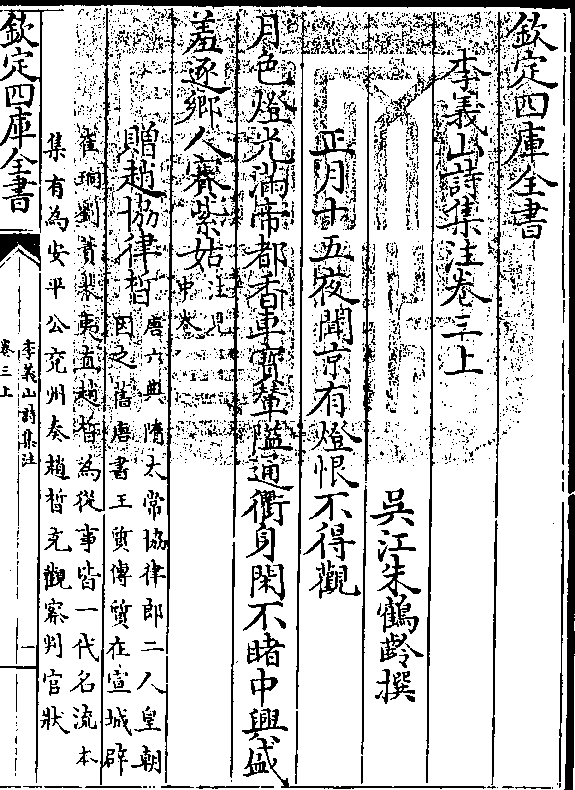 欽定四庫全書
李義山詩集注卷三上
吳江朱鶴齡撰
正月十五夜聞京有燈恨不得觀
月色燈光滿帝都香車寳輦隘通衢身閑不睹中興盛
羞逐鄉人賽紫姑
注見
中卷
贈趙協律晳
唐六典隋太常協律郎二人皇朝
因之舊唐書王質傳質在宣城辟
崔珦劉蕡裴夷直趙晳為從事皆一代名流本
集有為安平公兖州奏趙晳充觀察判官狀
欽定四庫全書
李義山詩集注
卷三上
一